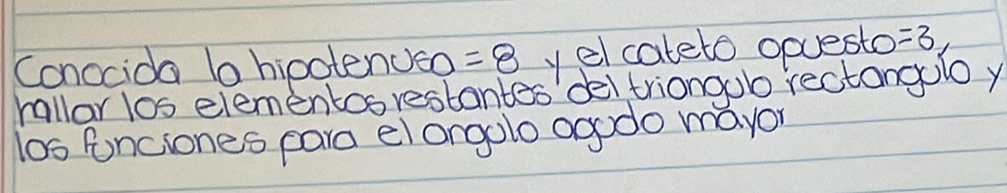 Conocida la hipotenusa = 8 y el cateto opuesto = 3,
hallar los elementos restantes del triangulo rectangulo y
las funciones para el angulo agudo mayor